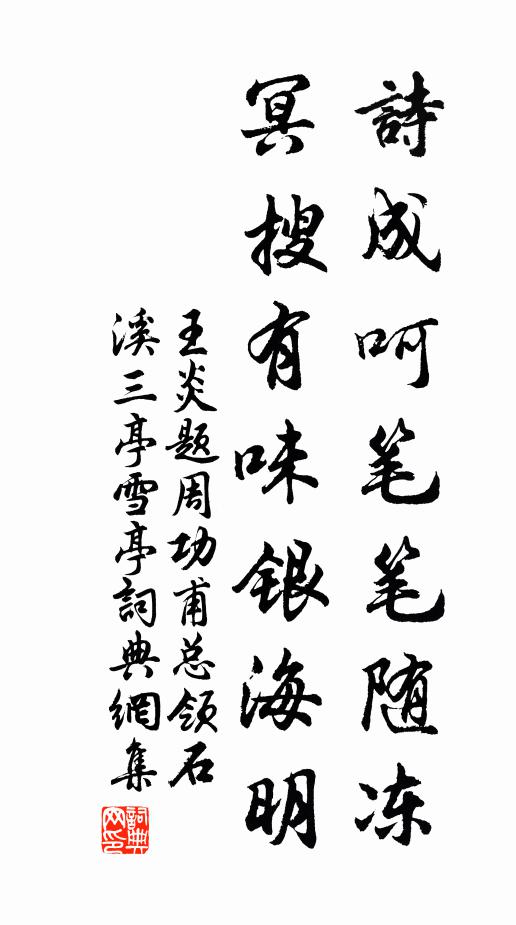 詩成呵笔笔随冻
冥搜有味銀海明
王炎题周功甫总领石
溪三亭雪亭詞典網集
詞典
网印